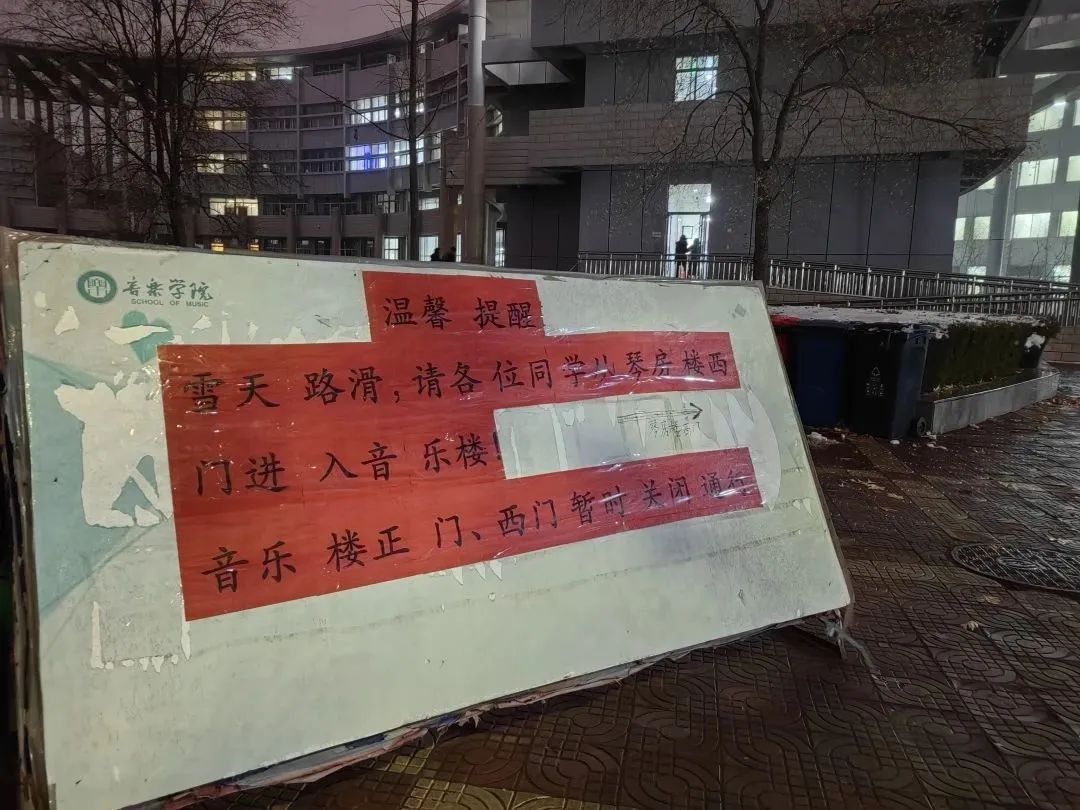 音乐学院
SCHOOL OF MUSIC
温馨 提醒
雪天 路滑,请各位同学从琴房楼西
门进 入音 乐楼!
琴房楼西门
音乐 楼正 门、西门 暂时 关闭 通行